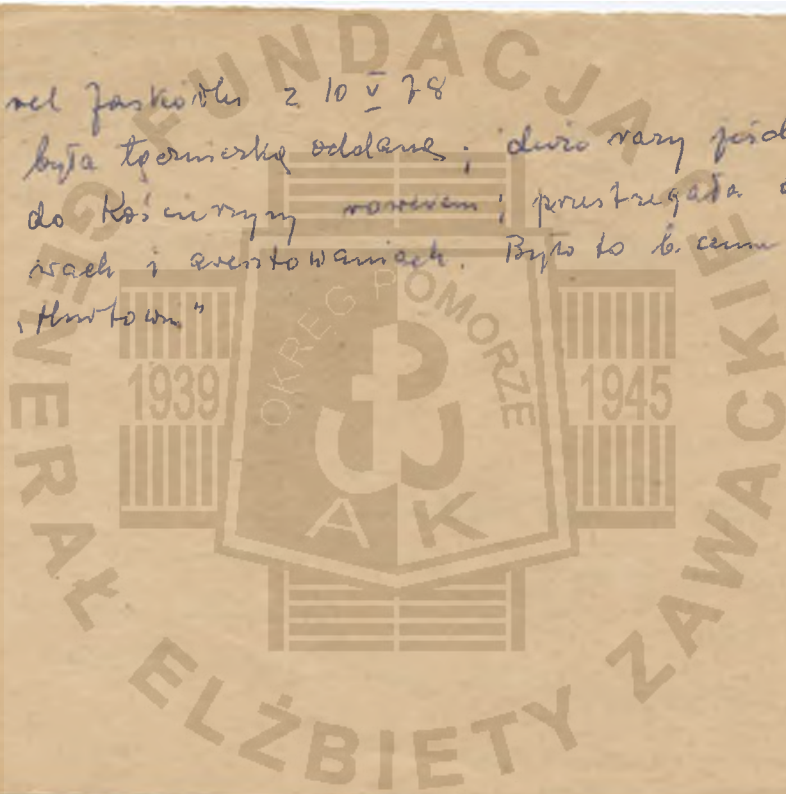 z 10 V 78
była łączniczką oddaną; dużo razy jeźd
do Kościerzyny rowerem; przestrzegała o
wach i aresztowaniach. Było to b. cenne
"Hurtown"
FUNDACJA
GENERAŁ ELŻBIETY ZAWACKIE
OKRĘG POMORZE
1939 1945
AK